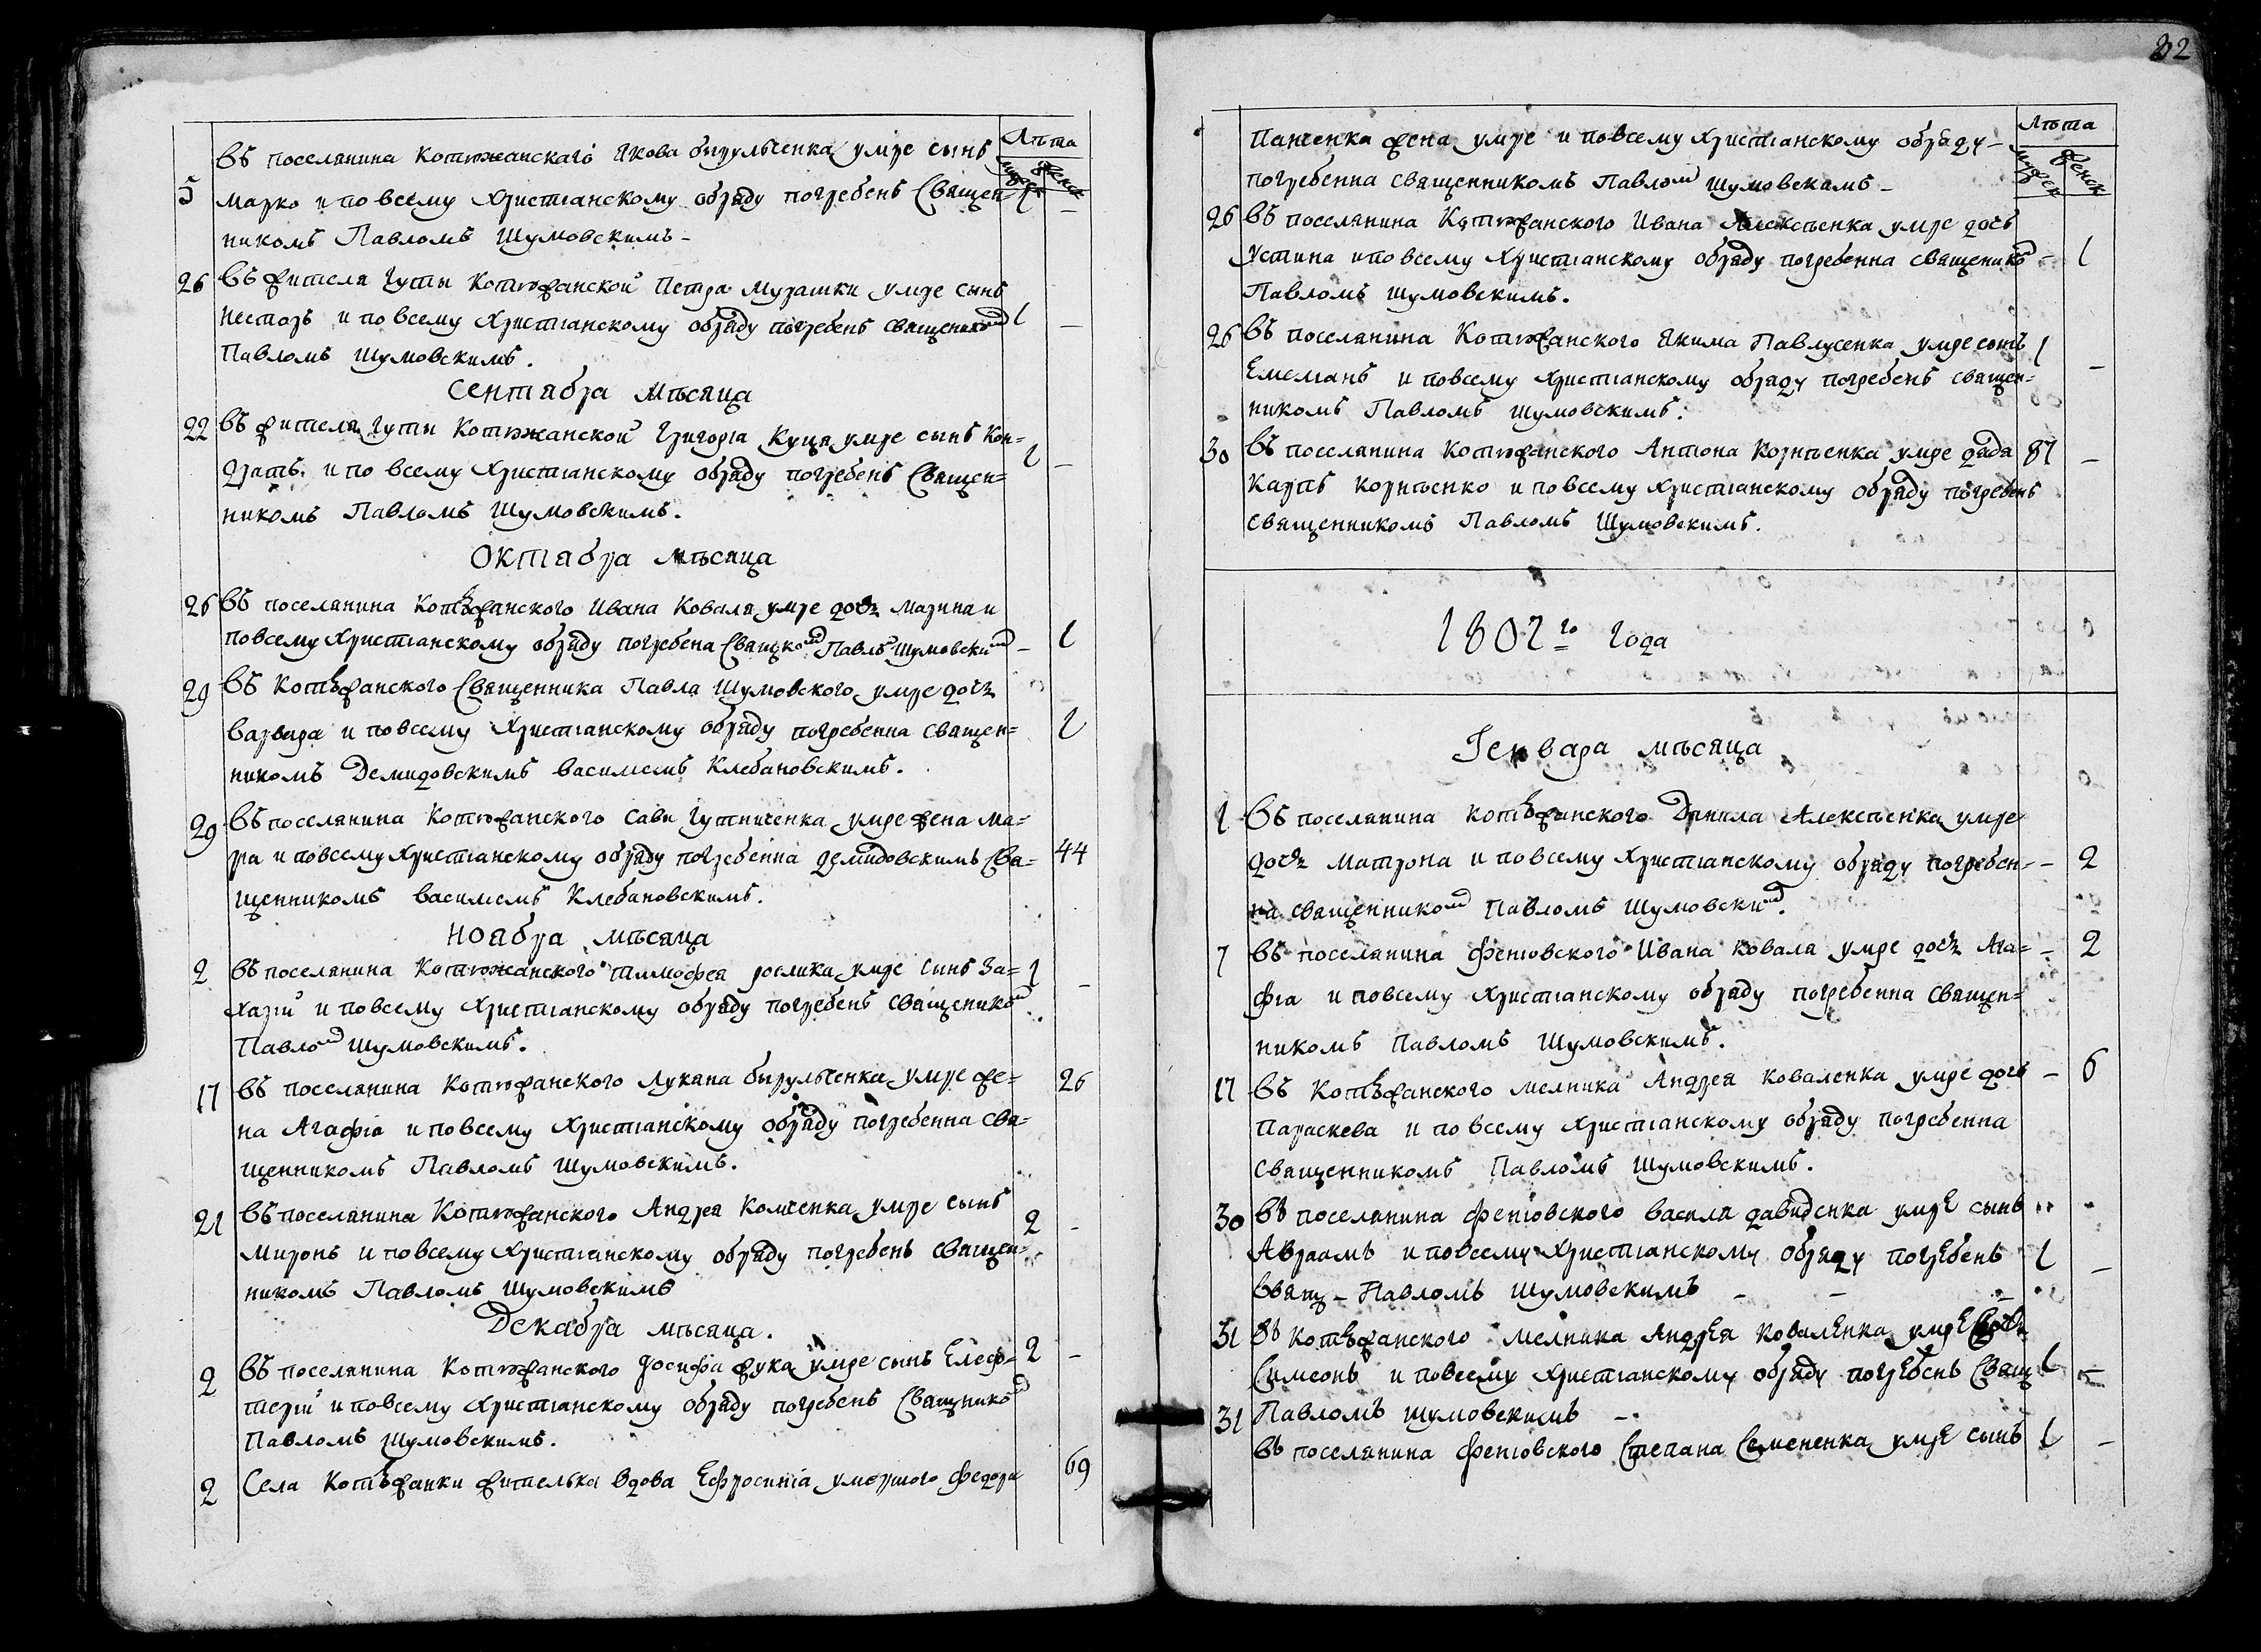 Лѣта
мужеск женск
въ поселянина Котюжанскаго Якова бырульченка умре сынъ
5 Марко и по всему Христіанскому обряду погребенъ Священ= 1 –
никомъ Павломъ Шумовскимъ –
26 въ жителя Гуты Котюжанской Петра Мурашки умре сынъ
Несторъ и по всему Христіанскому обряду погребенъ священиком 1 –
Павломъ Шумовскимъ.
Сентабра мѣсяца
22 въ жителя Гуты Котюжанской Григоріа Куця умре сынъ Кон=
дратъ. и по всему Христіанскому обряду погребенъ Священ= 1 –
никомъ Павломъ Шумовскимъ.
Октабра мѣсяца
26 въ поселянина Котюжанского Ивана Коваля умре дочь Марина и
повсему Христіанскому обряду погребена Свящком Павлом Шумовским – 1
29 въ Котюжанского Священника Павла Шумовского умре дочь
варвара и по всему Христіанскому обряду погребенна священ= 1
никомъ Демидовскимъ василіемъ Клебановскимъ.
29 въ поселянина Котюжанского Сави Гутниченка умре жена Ма=
ра и повсему Христіанскому обряду погребенна демидовскимъ Свя= 44
щенникомъ василіемъ Клебановскимъ.
Ноабра мѣсяца
2 въ поселянина Котюжанского Тимофея рослика умре сынъ За= 1
харій и по всему Христіанскому обряду погребенъ священиком –
Павлом Шумовскимъ.
17 въ поселянина Котюжанского Лукана бырульченка умре же= 26
на Агафіа и по всему Христіанскому обряду погребенна свя=
щенникомъ Павломъ Шумовскимъ.
21 въ поселянина Котюжанского Андрея Комченка умре сынъ 2 –
Миронъ и по всему Христіанскому обряду погребенъ священ=
никомъ Павломъ Шумовскимъ
Декабра мѣсяца.
2 въ поселянина Котюжанского Іосифа жука умре сынъ Елеф= 2 –
терій и по всему Христіанскому обряду погребенъ Свящником
Павломъ Шумовскимъ.
2 Села Котюжанки жителька вдова Ефросиніа умершого Федора 69
Лѣта
мужеск женск
Панченка жена умре и повсему Христіанскому обряду –
погребенна священникомъ Павлом Шумовскимъ –
26 въ поселянина Котюжанского Ивана Алексѣенка умре дочь
Устина и по всему Христіанскому обряду погребенна священиком – 1
Павломъ Шумовскимъ.
26 въ поселянина Котюжанского Якима Павлусенка умре сынъ 1
Емеліанъ и повсему Христіанскому обряду погребенъ священ= –
никомъ Павломъ Шумовскимъ.
30 въ поселянина Котюжанского Антона Корнѣенка умре дядя 87 –
Карпъ Корнѣенко и по всему Христіанскому обряду погребенъ
священникомъ Павломъ Шумовскимъ.
1802го года
Генвара мѣсяца
1 въ поселянина Котюжанского Данила Алексѣенка умре
дочь Матрона и по всему Христіанскому обряду погребен= – 2
на священником Павломъ Шумовским.
7 въ поселянина Фенювского Ивана Коваля умре дочь Ага= – 2
фіа и повсему Христіанскому обряду погребенна священ=
никомъ Павломъ Шумовскимъ.
17 въ Котюжанского мелника Андрея Коваленка умре дочь – 6
Параскева и по всему Христіанскому обряду погребенна
священникомъ Павломъ Шумовскимъ.
30 въ поселянина Фенювского василя давиденка умре сынъ
Авраамъ и повсему Христіанскому обряду погребенъ 1 –
Свящ – Павломъ Шумовскимъ – – –
31 въ Котюжанского мелника Андрея Коваленка умре
Симеонъ и повсему Христіанскому обряду погребенъ Свящ 1 –
Павломъ Шумовскимъ –
31 въ поселянина Фенювского Степана Семененка умре сынъ 1 –